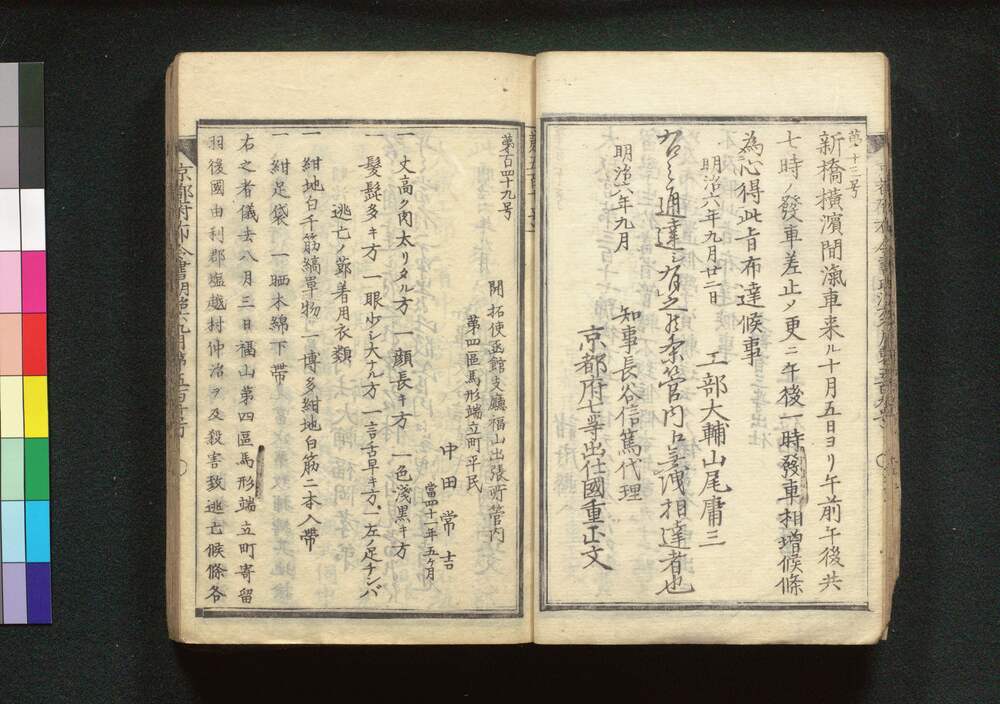 第十三号
新橋横濱間滊車来ル十月五日ヨリ午前午後共
七時ノ發車差止メ更ニ午後一時發車相増候條
為心得此旨布達候事
明治六年九月廿二日
工部大輔山尾庸三
右之通達シ有之候条管内江無洩相達者也
明治六年九月
知事長谷信篤代理
京都府七等出仕國重正文
第百四十九号
開拓使函館支廳福山出張所管内
第四區馬形端立町平民
中田常吉
當四十一年五ヶ月
一丈高ク肉太リタル方 一顔長キ方 一色淺黒キ方
一髪髭多キ方 一眼少シ大ナル方 一言舌早キ方 一左ノ足チンバ
逃亡ノ節着用衣類
一紺地白千筋縞單物 一博多紺地白筋二本入帯
一紺足袋 一晒木綿下帯
右之者儀去八月三日福山第四區馬形端立町寄留
羽後國由利郡塩越村仲治ヲ及殺害致逃亡候條各